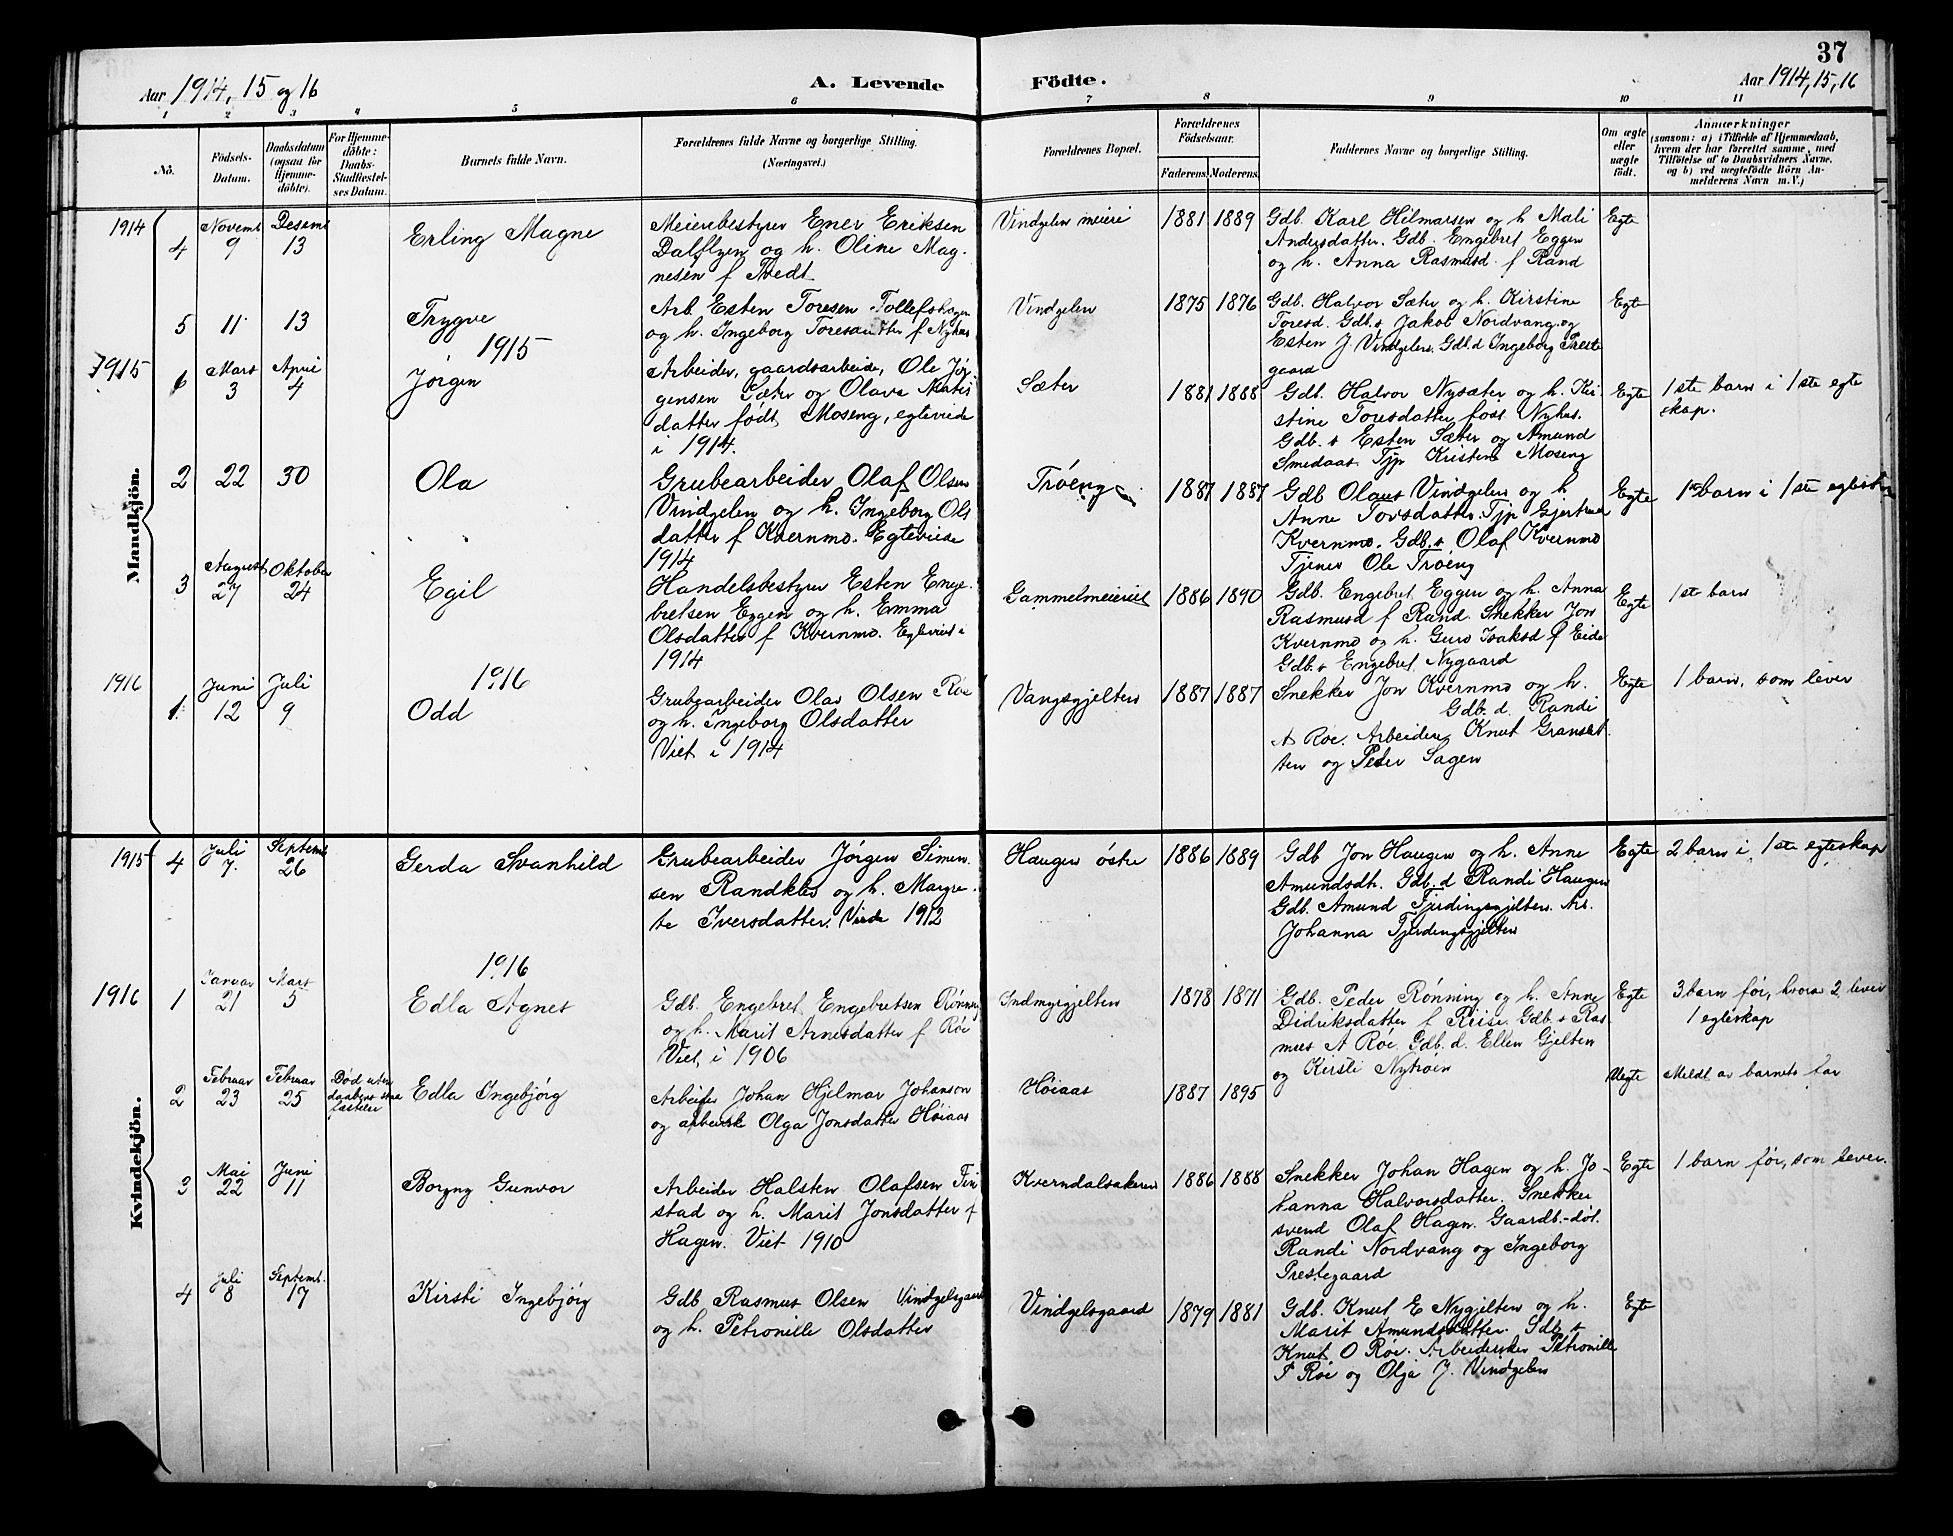 37
Aar 1914, 15 og 16
A. Levende Födte.
Aar 1914, 15, 16
1 2 3 4 5 6 7 8 9 10 11
No.
Födsels-
Datum.
Daabsdatum
(ogsaa for
Hjemme-
döbte).
For Hjemme-
döbte:
Daabs-
Stadfæstel-
ses Datum.
Barnets fulde Navn.
Forældrenes fulde Navne og borgerlige Stilling.
(Næringsvei.)
Forældrenes Bopæl.
Forældrenes
Födselsaar.
Faderens. Moderens.
Faddernes Navne og borgerlige Stilling.
Om ægte
eller
uægte
født.
Anmærkninger
(saasom: a) i Tilfælde af Hjemmedaab,
hvem der har forrettet samme, med
Tilföielse af to Daabsvidners Navne,
og b) ved uægtefödte Börn An-
melderens Navn m. V.)
Mandkjön.
1914
4
Novemb
9
Desemb
13
Erling Magne
Meieribestyrer Ener Eriksen
Dalflyen og h. Oline Mag-
nesen f Tvedt
Vindgelen meieri
1881 1889
Gdb. Karl Hilmarsen og h Mali
Andersdatter. Gdb. Engebret Eggen
og h. Anna Rasmusd. f Rand
Egte
5 11 13
Trygve
Arb Esten Toresen Tollefshagen
og h. Ingeborg Toresdatter f Nyhus
Vindgelen
1875 1876
Gdb. Halvor Sæter og h. Kirstine
Toresd. Gdb. s Jakob Nordvang og
Esten J. Vindgelen. Gdb. d Ingeborg Preste
gaard
Egte
1915
1915
1
Mars
3
April
4
Jørgen
Arbeider, gaardsarbeide, Ole Jør-
gensen Sæter og Olava Mats
datter født Moseng, egteviede
i 1914.
Sæter
1881 1888
Gdb. Halvor Nysæter og h. Kir-
stine Toresdatter født Nyhus.
Gdb. s Esten Sæter og Amund
Smedaas Tjp Kristine Moseng
Egte
1ste barn i 1ste egte
skap.
2 22 30
Ola
Grubearbeider Olaf Olsen
Vindgelen og h. Ingeborg Ols
datter f Kvernmo. Egteviede
1914
Trøeng
1887 1887
Gdb Olaus Vindgelen og h
Anne Torsdatter. Tjp Gjertrud
Kvernmo. Gdb. s Olaf Kvernmo
Tjener Ole Trøeng
Egte
1ste barn i 1ste egteskap
3
August
27
Oktober
24
Egil
Handelsbestyrer Esten Enge-
bretsen Eggen og h. Emma
Olsdatter f Kvernmo. Egteviet i
1914
Gammelmeieriet
1886 1890
Gdb. Engebret Eggen og h. Anna
Rasmusd f Rand. Snekker Jon
Kvernmo og h. Guro Isaksd f Eide
Gdb. s Engebret Nygaard
Egte
1ste barn
1916
1916
1.
Juni
12
Juli
9
Odd
Grubearbeider Olav Olsen Røe
og h. Ingeborg Olsdatter
Viet i 1914
Vangsgjelten
1887 1887
Snekker Jon Kvernmo og h.
Gdb. d. Randi
A Røe. Arbeidere Knut Granslet-
ten og Peder Sagen
Egte
1 barn, som lever
Kvindekjön.
1915
4
Juli
7.
Septemb
26
Gerda Svanhild
Grubearbeider Jørgen Simen-
sen Randklev og h. Margre-
te Iversdatter. Viede 1912
Haugen østre
1886 1889
Gdb Jon Haugen og h. Anne
Amundsdtr. Gdb. d Randi Haugen
Gdb. Amund Tjerdingsgjelten. Arb.
Johanna Tjerdingsgjelten
Egte
2 barn i 1ste egteskap
1916
1916
1
Januar
21
Mars
5
Edla Agnes
Gdb. Engebret Engebretsen Rønning
og h. Marit Arnesdatter f Røe
Viet i 1906
Indmyrgjelten
1878 1871
Gdb. Peder Rønning og h. Anne
Didriksdatter f Rise. Gdb. s Ras-
mus A Røe. Gdb. d. Ellen Gjelten
og Kirsti Nytrøen
Egte
3 barn før, hvorav 2 lever
1 egteskap
2
Februar
23
Februar
25
Død uten
daabens stad
fæstelse
Edla Ingebjørg
Arbeider Johan Hjelmar Johanson
og arbeiderske Olga Jonsdatter Høiaas
Høiaas
1887 1895
Uegte
Meldt av barnets far
3
Mai
22
Juni
11
Borgny Gunvor
Arbeider Halsten Olafsen Fin
stad og h. Marit Jonsdatter f
Hagen. Viet 1910
Kverndalsakeren
1886 1888
Snekker Johan Hagen og h. Jo-
hanna Halvorsdatter. Snekker
svend Olaf Hagen. Gaardb.-døt.
Randi Nordvang og Ingeborg
Prestegaard
Egte
1 barn før, som lever.
4
Juli
8
Septemb.
17
Kirsti Ingebjørg
Gdb Rasmus Olsen Vindgelsgaard
og h. Petronille Olsdatter
Vindgelsgaard
1879 1881
Gdb. Knut E Nygjelten og h.
Marit Amundsdatter. Gdb. s
Knut O Røe. Arbeidersker Petronille
P Røe og Olja J. Vindgelen
Egte